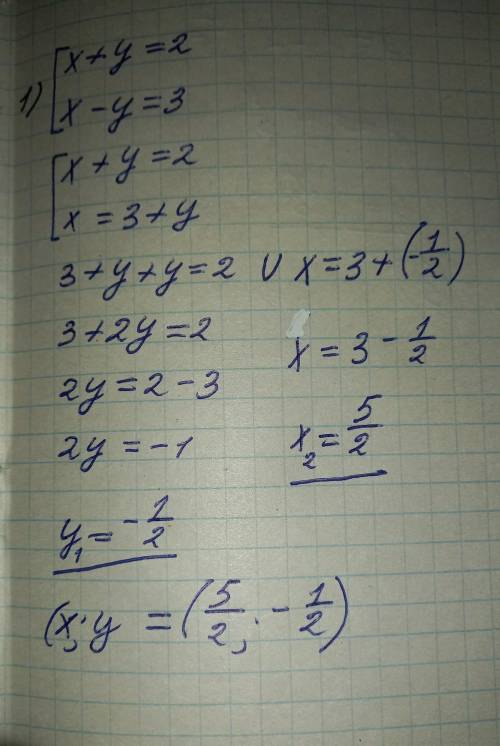 1) [x+y=2
x-y=3
[x+y=2
x=3+y
3+y+y=2 ∪ x=3+(-1/2)
3+2y=2
x=3-1/2
2y=2-3
x₂=5/2
2y=-1
y₁=-1/2
(x;y=(5/2;-1/2)